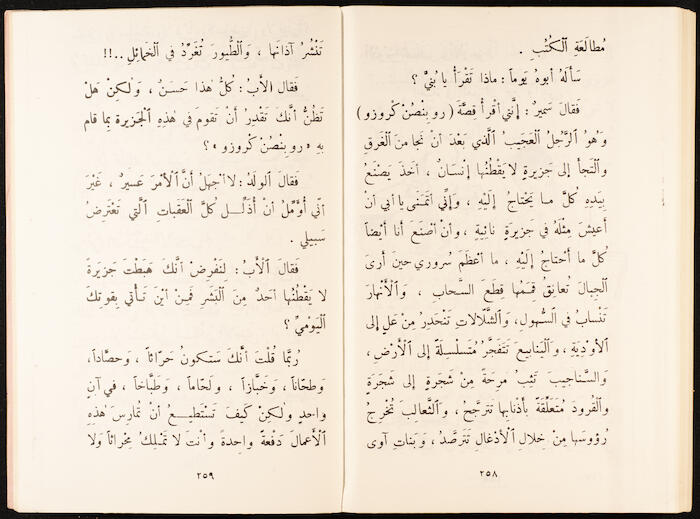 مُطالَعَةِ ٱلكُتُبِ .
سأَلَهُ أَبوهُ يَوماً : ماذا تَقْرَأُ يا بُنَيَّ ؟
فَقالَ سَميرٌ : إِنَّني أَقْرأُ قِصَّةَ ( روبِنْصُنْ كْروزو )
وَهُوَ ٱلرَّجُلُ ٱلعَجيبُ ٱلَّذي بَعْدَ أَنْ نَجا مِنَ ٱلغَرَقِ
وٱلتَجأَ إِلى جَزيرةٍ لا يَقْطُنُها إِنْسَانٌ ، أَخَذَ يَصْنَعُ
بِيَدِهِ كُلَّ ما يَحْتاجُ إِلَيْهِ ، وَإِنِّي أَتَمَنَّى يا أَبي أَنْ
أَعيشَ مِثْلَهُ في جَزيرَةٍ نائِيةٍ ، وأَنْ أَصْنَعَ أَنا أَيْضاً
كُلَّ ما أَحْتاجُ إِلَيْهِ ، ما أَعْظَمَ سُروري حينَ أَرى
ٱلجِبالَ تُعانِقُ قِمَمُها قِطَعَ ٱلسَّحابِ ، وَٱلأَنْهارَ
تَنْسابُ في ٱلسُّهولِ، وَٱلشَّلّالاتِ تَنْحَدِرُ مِنْ عَلٍ إِلى
ٱلأَوْدِيَةِ ، وَٱلْيَنابيعَ تَتَفَجَّرُ مُتَسَلْسِلَةً إِلى ٱلأَرْضِ ،
وَٱلسَّناجيبَ تَثِبُ مَرِحَةً مِنْ شَجَرَةٍ إِلى شَجَرَةٍ
وَٱلقُرودَ مُتَعَلِّقَةً بِأَذْنابِها تَتَرَجَّحُ ، وَٱلثَّعالِبَ تُخْرِجُ
رُؤوسَها مِنْ خِلالِ ٱلأَدْغالِ تَتَرَصَّدُ ، وَبَناتِ آوى
٢٥٨
تَنْشُرُ آذانَها ، وَٱلطُّيورَ تُغَرِّدُ في ٱلخَمائِلِ ..!!
فَقالَ ٱلأَبُ : كُلُّ هٰذا حَسَنٌ ، وَلٰكِنْ هَلْ
تَظُنُّ أَنَّكَ تَقْدِرُ أَنْ تَقومَ في هٰذِهِ ٱلجَزيرةِ بِما قامَ
بِهِ « روبِنْصُنْ كْروزو » ؟
فَقالَ ٱلوَلَدُ : لا أَجْهَلُ أَنَّ ٱلأَمْرَ عَسيرٌ ، غَيْرَ
أَنِّي أُؤَمِّلُ أَنْ أُذَلِّلَ كُلَّ ٱلعَقَباتِ ٱلَّتي تَعْتَرِضُ
سَبيلي .
فَقالَ ٱلأَبُ : لِنَفْرِضْ أَنَّكَ هَبَطْتَ جَزيرَةً
لا يَقْطُنُها أَحَدٌ مِنَ ٱلبَشَرِ فَمِنْ أَيْنَ تَأْتي بِقوتِكَ
ٱليَوْمِيِّ ؟
رُبَّما قُلْتَ أَنَّكَ سَتَكونُ حَرّاثاً ، وَحصَّاداً،
وَطحّاناً ، وَخَبّازاً ، وَلَحّاماً ، وَطَبّاخاً ، في آنٍ
واحِدٍ وَلٰكِنْ كَيفَ تَسْتَطيعُ أَنْ تُمارِسَ هٰذِهِ
ٱلأَعمالَ دَفْعَةً واحِدةً وأَنْتَ لا تَمْلِكُ مِحْراثاً وَلا
٢٥٩